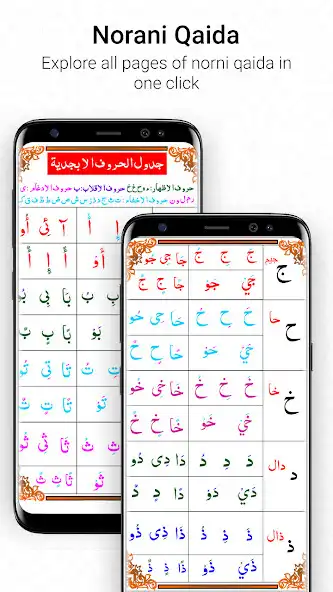 Norani Qaida
Explore all pages of norni qaida in
one click
جدول الحروف الابجدية
حروف الاظهار: ء ه ع ح غ خ حروف الاقلاب: ب حروف الادغام: ي
ر م ل و ن حروف الاخفاء: ت ث ج د ذ ز س ش ص ض ط ظ ف ق ك
إِ أُ آ ئِى أُو
أَوْ أً إٍ أٌ
بِ بُ بَا بِى
بَوْ بًا بٍ بٌ
تِ تُ تَا تِى
تَوْ تًا تٍ تٌ
ثِ ثُ ثَا ثِى
ثَوْ ثًا ثٍ ثٌ
جيم
ج
جَ جِ جُ جَا جِى جُو
جَيْ جَوْ جًا جٍ جٌ
حا
ح
حَ حِ حُ حَا حِى حُو
حَيْ حَوْ حًا حٍ حٌ
خا
خ
خَ خِ خُ خَا خِى خُو
خَيْ خَوْ خًا خٍ خٌ
دال
د
دَ دِ دُ دَا دِى دُو
دَيْ دَوْ دًا دٍ دٌ
ذال
ذ
ذَ ذِ ذُ ذَا ذِى ذُو
ذَيْ ذَوْ ذًا ذٍ ذٌ